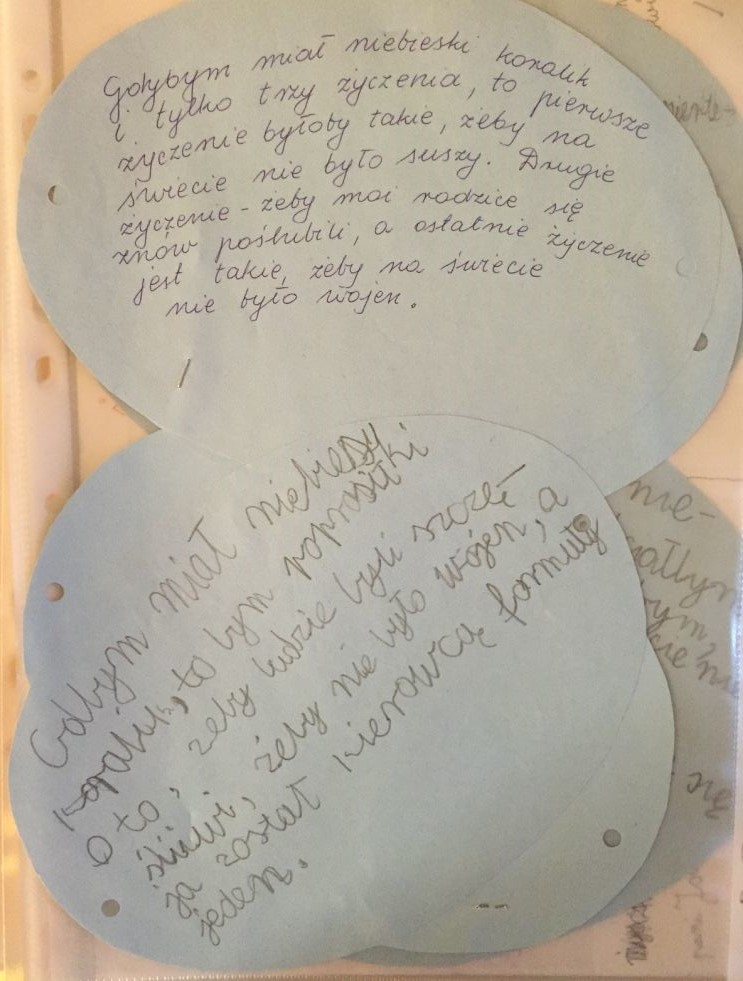 Gdybym miał niebieski koralik
i tylko trzy życzenia, to pierwsze
życzenie byłoby takie, żeby na
świecie nie było suszy. Drugie
życzenie - żeby moi rodzice się
znów poślubili, a ostatnie życzenie
jest takie, żeby na świecie
nie było wojen.
Gdbym miał niebieski
koralik, to bym poprosił
o to, żeby ludzie byli szczę-
śliwi, żeby nie było wojen, a
ja został kierowcą formuły
jeden.
nie-
się